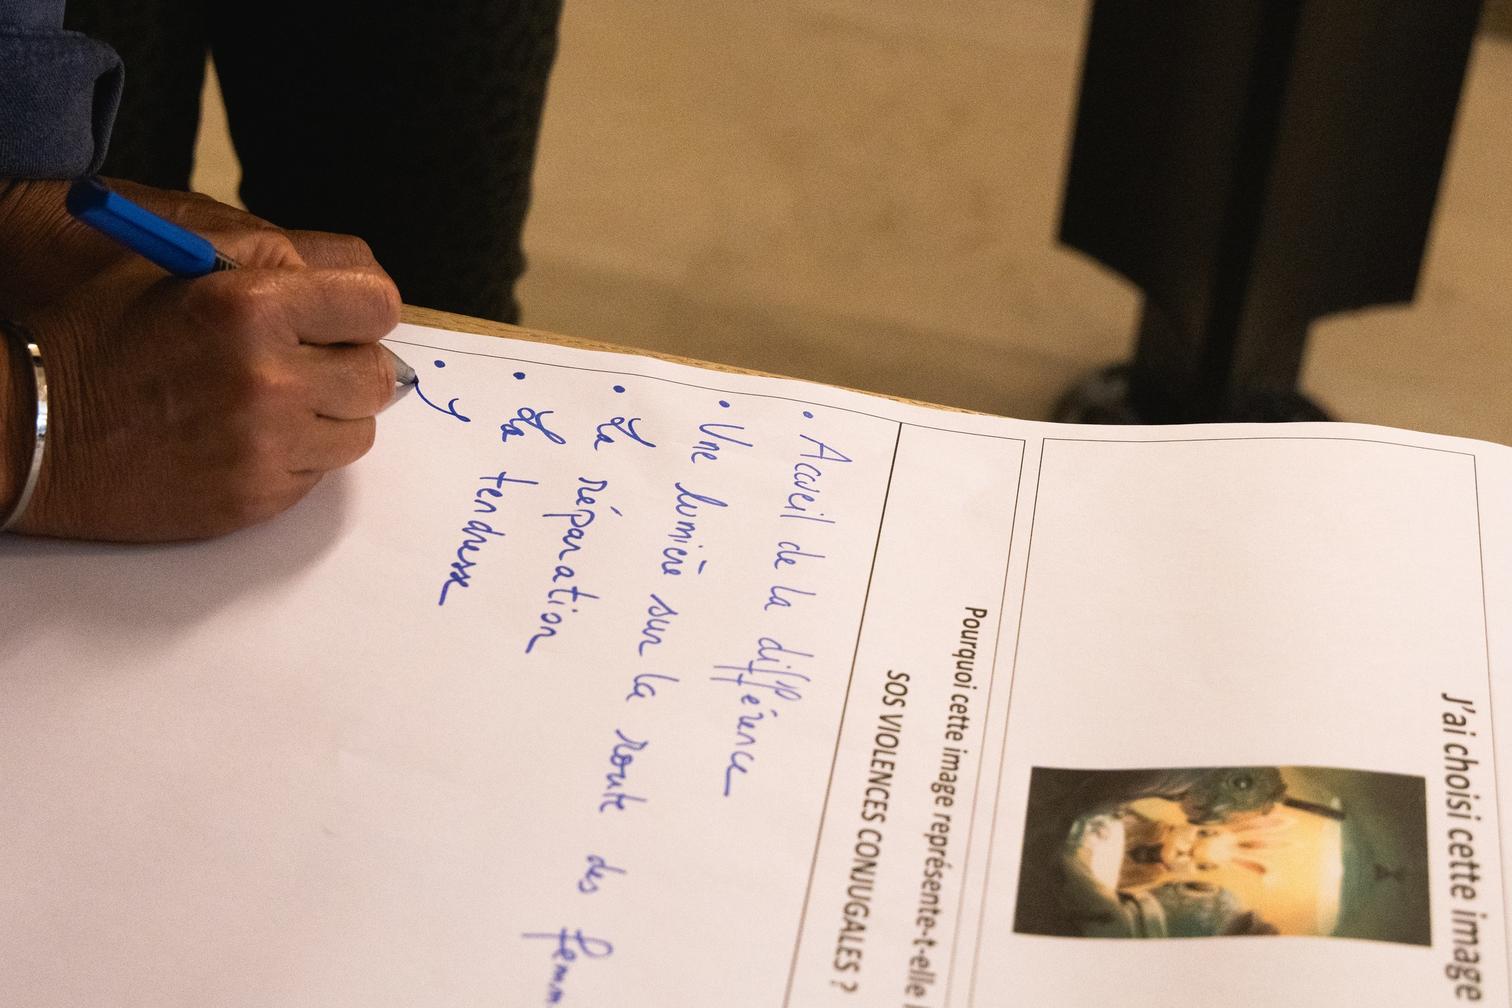 J'ai choisi cette image
Pourquoi cette image représente-t-elle
SOS VIOLENCES CONJUGALES ?
• Accueil de la différence
• Une lumière sur la route des femm
• La réparation
• La tendresse
•